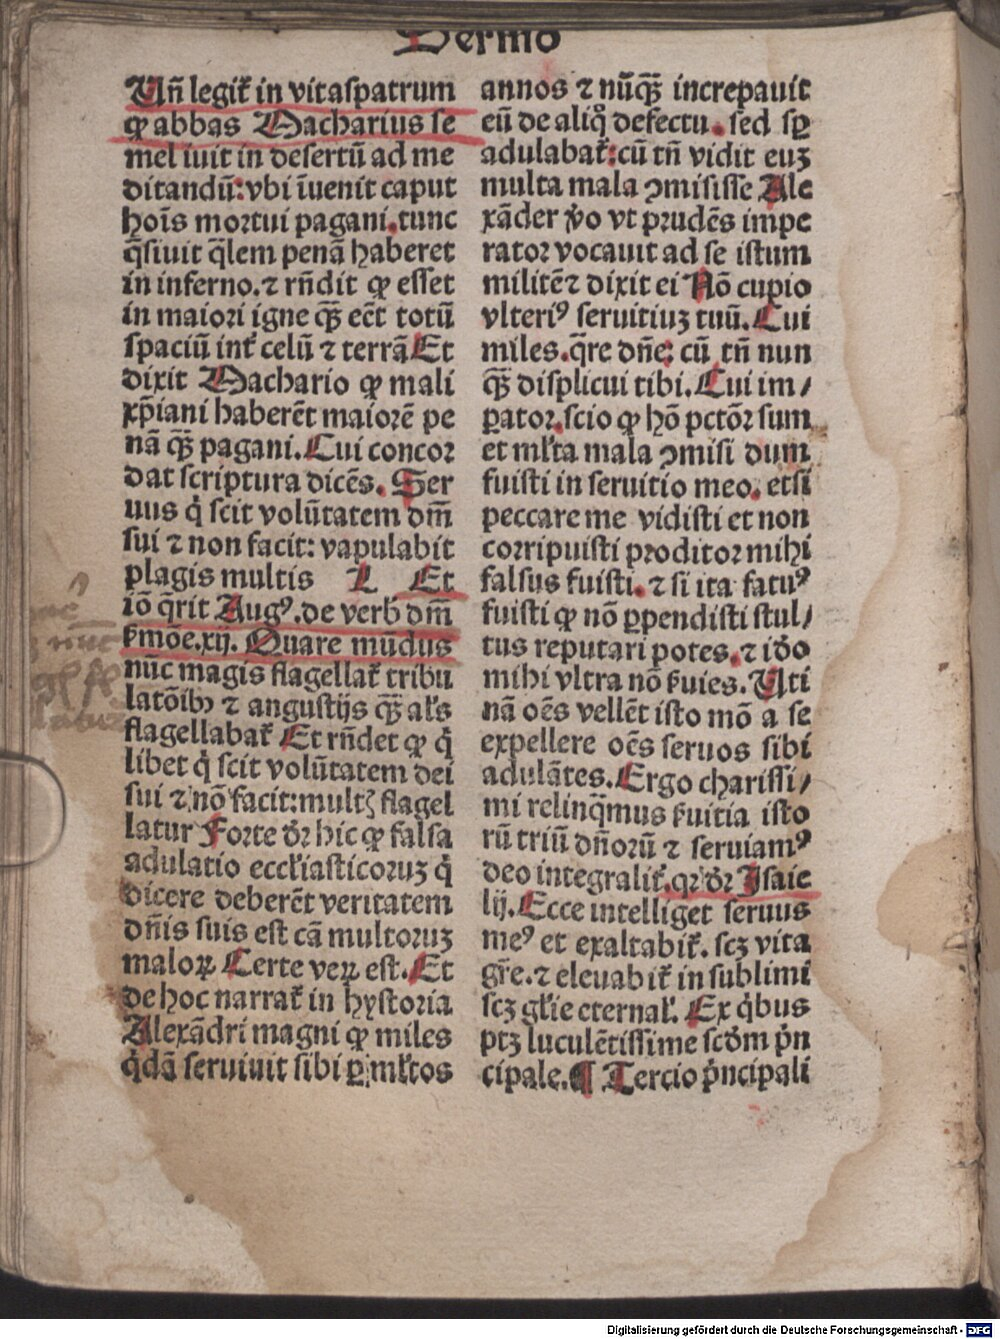 Sermo
Un̄ legit̄ in vitaspatrum
ꝙ abbas Macharius se
mel iuit in desertū ad me
ditandū: vbi īuenit caput
hoīs mortui pagani. tunc
q̄siuit q̄lem penā haberet
in inferno. ⁊ rn̄dit ꝙ esset
in maiori igne qꝫ̄ eēt totū
spaciū int̄ celū ⁊ terrā Et
dixit Machario ꝙ mali
xp̄iani haberēt maiorē pe
nā qꝫ̄ pagani. Cui concor
dat scriptura dicēs. Ser
uus q̇ scit volūtatem dn̄i
sui ⁊ non facit: vapulabit
plagis multis L Et
iō q̄rit Augꝰ. de verb̄ dn̄i
ẜmōe. xij. Quare mūdus
nūc magis flagellat̄ tribu
latōibꝰ ⁊ angustijs qꝫ̄ al̄s
flagellabat̄ Et rn̄det ꝙ q̇
libet q̇ scit volūtatem dei
sui ⁊ nō facit: multꝭ flagel
latur Forte dr̄ hic ꝙ falsa
adulatio eccl̄iasticoruꝫ q̇
dicere deberēt veritatem
dn̄is suis est cā multoruꝫ
maloꝝ Certe veꝝ est. Et
de hoc narrat̄ in hystoria
Alexādri magni ꝙ miles
q̇dā seruiuit sibi ꝑ ml̄tos
annos ⁊ nūqꝫ̄ increpauit
eū de aliq̊ defectu. sed sꝑ
adulabat̄: cū tn̄ vidit euꝫ
multa mala ꝯmisisse Ale
xāder v̊o vt prudēs impe
rator vocauit ad se istum
militē ⁊ dixit ei Nō cupio
vlteriꝰ seruitiuꝫ tuū. Cui
miles. q̄re dn̄e: cū tn̄ nun
qꝫ̄ displicui tibi. Cui im/
ꝑator. scio ꝙ hō pctōr sum
et ml̄ta mala ꝯmisi dum
fuisti in seruitio meo. etsi
peccare me vidisti et non
corripuisti proditor mihi
falsus fuisti. ⁊ si ita fatuꝰ
fuisti ꝙ nō ꝑpendisti stul/
tus reputari potes. ⁊ iđo
mihi vltra nō ẜuies. Uti
nā oēs vellēt isto mō a se
expellere oēs seruos sibi
adulātes. Ergo charissi/
mi relinq̄mus ẜuitia isto
rū triū dn̄orū ⁊ seruiamꝰ
deo integralit̄. qr dr̄ Isaie
lij. Ecce intelliget seruus
meꝰ et exaltabit̄. scꝫ vita
gr̄e. ⁊ eleuabit̄ in sublimi
scꝫ gl̄ie eternal̄. Ex q̇bus
ptꝫ luculētissime scđm ṗn
cipale. ¶ Tercio ṗncipali
Digitalisierung gefördert durch die Deutsche Forschungsgemeinschaft - DFG